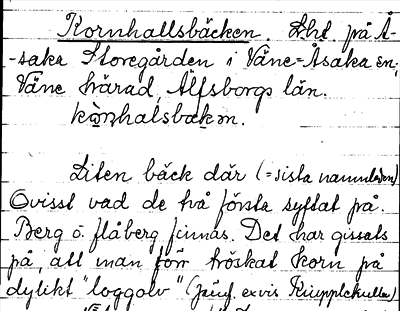 Kornhallsbäcken. Lht på Å-
-saka Storegården i Väne-Åsaka sn,
Väne härad, Älfsborgs län.
Liten bäck där (=sista namnleden)
Ovisst vad de två första syftat på.
Berg o. flåberg finnas. Det har gissats
på, att man förr tröskat korn på
dylikt "loggolv" (jämf. exvis